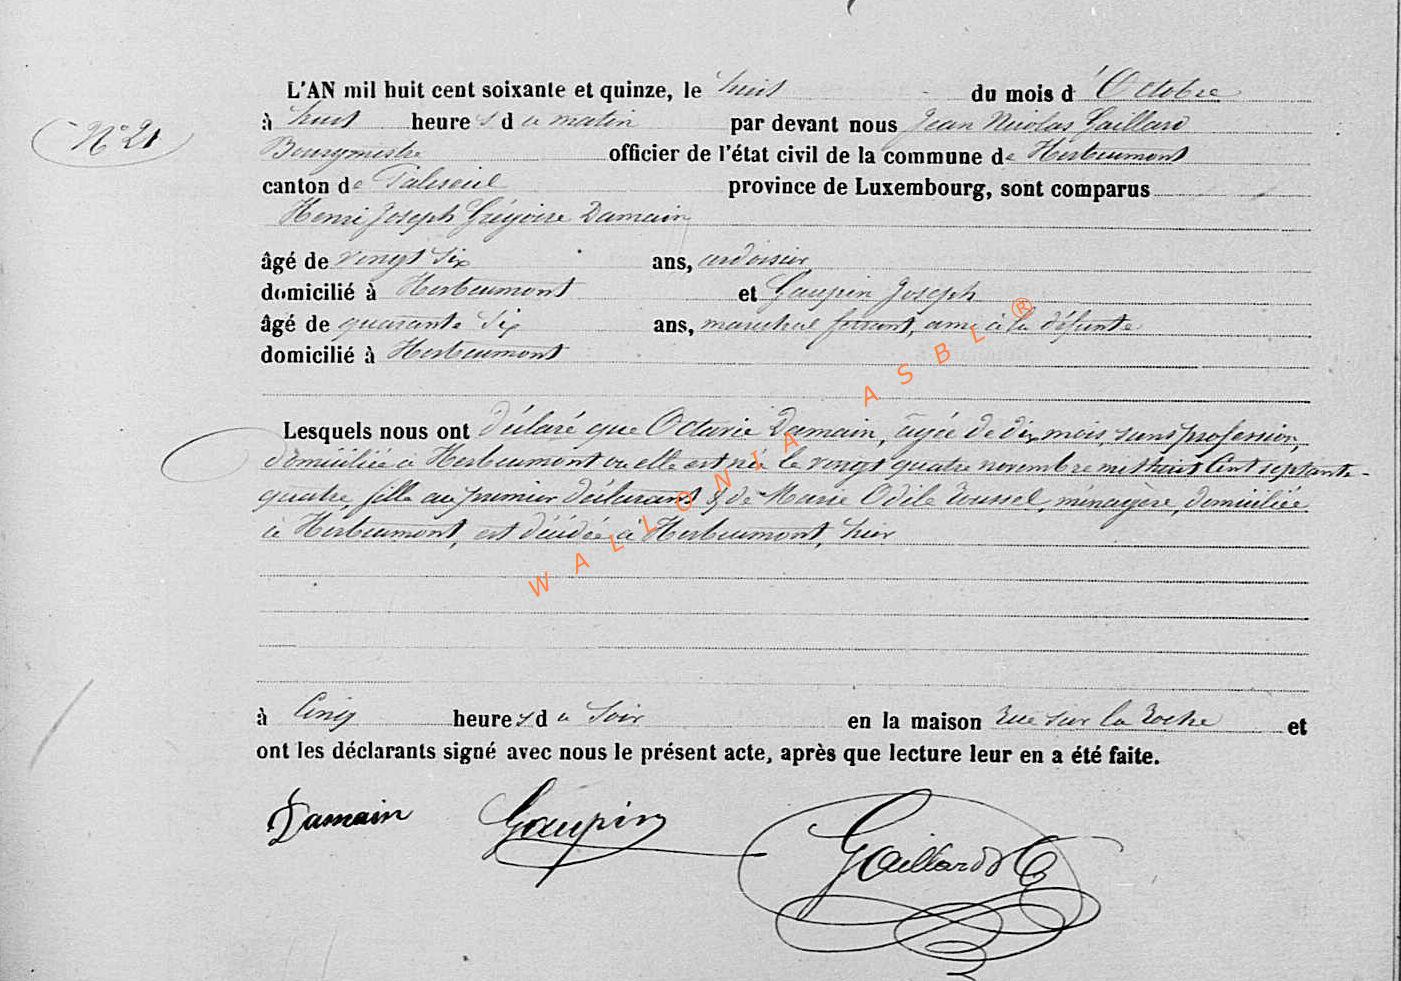 L'AN mil huit cent soixante et quinze, le huit du mois d'Octobre
N° 21
à huit heures du matin par devant nous Jean Nicolas Gaillard
Bourgmestre officier de l'état civil de la commune de Herbeumont
canton de Paliseul province de Luxembourg, sont comparus
Henri Joseph Grégoire Damain
âgé de vingt six ans, ardoisier
domicilié à Herbeumont et Gaupin Joseph
âgé de quarante six ans, marechal ferrant, ami à la défunte
domicilié à Herbeumont
Lesquels nous ont déclaré que Octavie Damain, agée de dix mois, sans profession,
domiciliée à Herbeumont ou elle est né le vingt quatre novembre mil huit Cent septante-
quatre, fille au premier déclarant & de Marie Odile Roussel, ménagère, domiciliée
à Herbeumont, est décédée à Herbeumont, hier
à Cinq heures du Soir en la maison Rue sur la Roche et
ont les déclarants signé avec nous le présent acte, après que lecture leur en a été faite.
Damain Gaupin Gaillard
WALLONIA ASBL ®